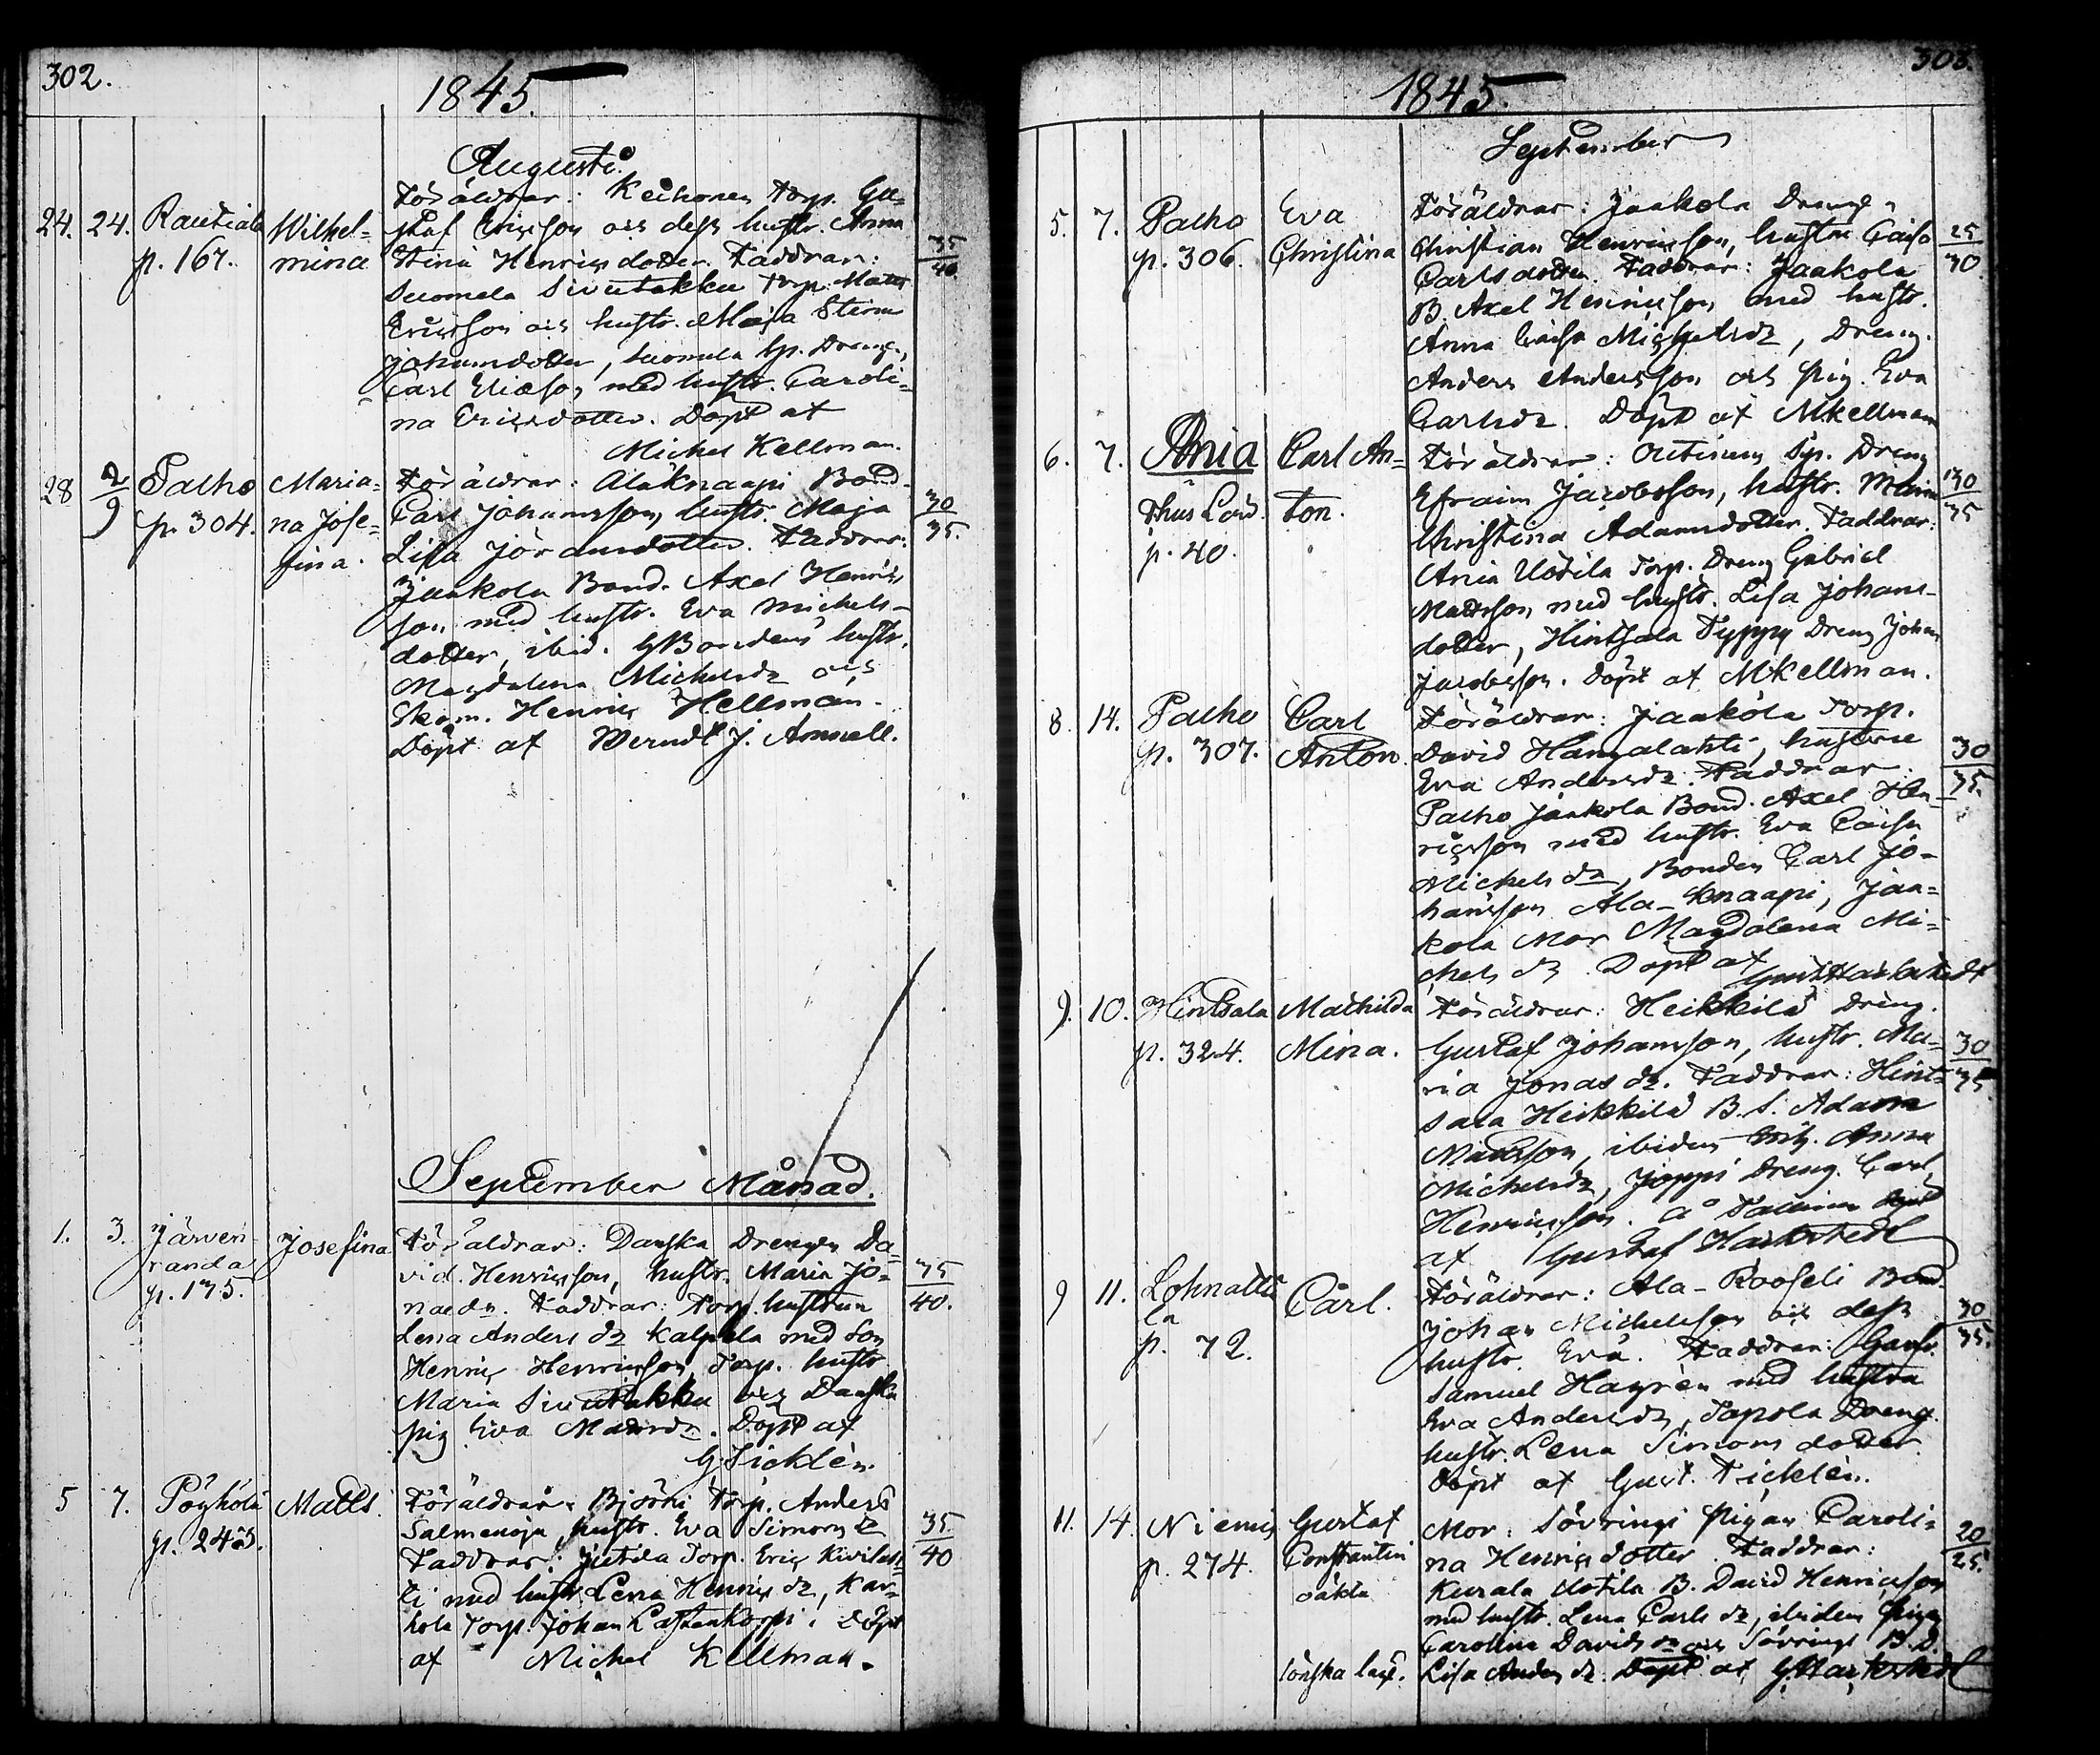 302.
1845.
Augusti.
24. 24. Rautiala Wilhel=
p. 167. mina
Föräldrar: Keihonen Torp. Gu=
staf Ericsson och dess hustr. Anna
Stina Henricsdotter. Faddrar:
Suomela Sivutakku Torp. Matts
Ericsson och hustr. Maja Stina
Johansdotter, Suomela Sp. Dreng.
Carl Eliæson med hustr. Caroli=
na Ericsdotter. Döpt af
Michel Kellman.
35
40.
28 2/9 Palho Maria=
p. 304. na Jose=
fina.
Föräldrar: Alaknaapi Bond.
Carl Johansson, hustr. Maja
Lisa Jöransdotter. Faddrar:
Jaakola Bond. Axel Henrics
son med hustr. Eva Michels-
dotter, ibid. GBondens hustr.
Magdalena Michelsdr och
Skom. Henric Hellman.
Döpt af Werndt J. Amnell.
30
35.
September Månad.
1. 3. Järven- Josefina
randa
p. 175.
Föräldrar: Danska Drengen Da=
vid Henricsson, hustr. Maria Jo=
nasdr. Faddrar: Torp. hustrun
Lena Anders dr Kalpela med Son
Henric Henricsson, Torp. hustr.
Maria Sivutakku och Danska
pig Eva Mattsdr. Döpt af
G Ticklén.
35
40.
5 7. Pöyhölä Matts.
p. 245.
Föräldrar: Björni Torp. Anders
Salmenoja, hustr. Eva Simons dr
Faddrar: Jutila Torp. Eric Kivilas=
ti med hustr. Lena Henrics dr, Kar=
hola Torp. Johan Lastankorpi. Döpt
af Michel Kellman.
35
40
303.
1845.
September
5. 7. Palho Eva
p. 306. Christina
Föräldrar: Jaakola Dreng
Christian Henricsson, hustru Caisa
Carlsdotter. Faddrar: Jaakola
B. Axel Henricsson med hustr.
Anna Caisa Michelsdr, Dreng.
Anders Andersson och pig. Eva
Carlsdr. Döpt af MKellman
25
30
6. 7. Ania Carl An=
p. 40. ton.
Föräldrar: Outinens Sp. Dreng
Efraim Jacobsson, hustr. Maria
Christina Adamsdotter. Faddrar:
Ania Uotila Torp. Dreng Gabriel
Mattsson med hustr. Lisa Johans-
dotter, Hintsala Typpy Dreng Johan
Jacobsson. Döpt af MKellman.
30
35
8. 14. Palho Carl
p. 307. Anton.
Föräldrar: Jaakola Torp.
David Hangalahti, hustrue
Eva Andersdr. Faddrar:
Palho Jaakola Bond. Axel Hen=
ricsson med hustr. Eva Caisa
Michels dr, Bonden Carl Jo=
hansson Ala-Knaapi, Jaa=
kola Mor Magdalena Mi=
chels dr. Döpt af
Gust Hartstedt
30
35.
9. 10. Hintsala Mathilda
p. 324. Mina.
Föräldrar: Heikkilä Dreng.
Gustaf Johansson, hustr. Ma=
ria Jonas dr. Faddrar: Hint=
sala Heikkilä B. S. Adam
Mattsson, ibidem Anna
Michelsdr, Joppi Dreng. Carl
Henricsson. Döpt
af Gustaf Hartstedt
30
35
9 11. Lohnatti Carl.
la
p. 72.
Föräldrar: Ala-Rooseli Bond.
Johan Michelsson och dess
hustr. Eva. Faddrar:
Samuel Hagrén med hustru
Eva Andersdr, Tapola Dreng.
hustr. Lena Simonsdotter.
Döpt af Gust. Ticklén.
30
35.
11. 14. Niemis Gustaf
p. 274. Constantin
oäkta
Mor: Sövringi Pigan Caroli=
na Henricsdotter. Faddrar:
Kurala Uotila B. David Henricsson
med hustr. Lena Carls dr, ibidem Pigan
Carolina Davids dr och Sövringi B. D.
Lisa Anders dr. Döpt af GHartstedt
20
25.